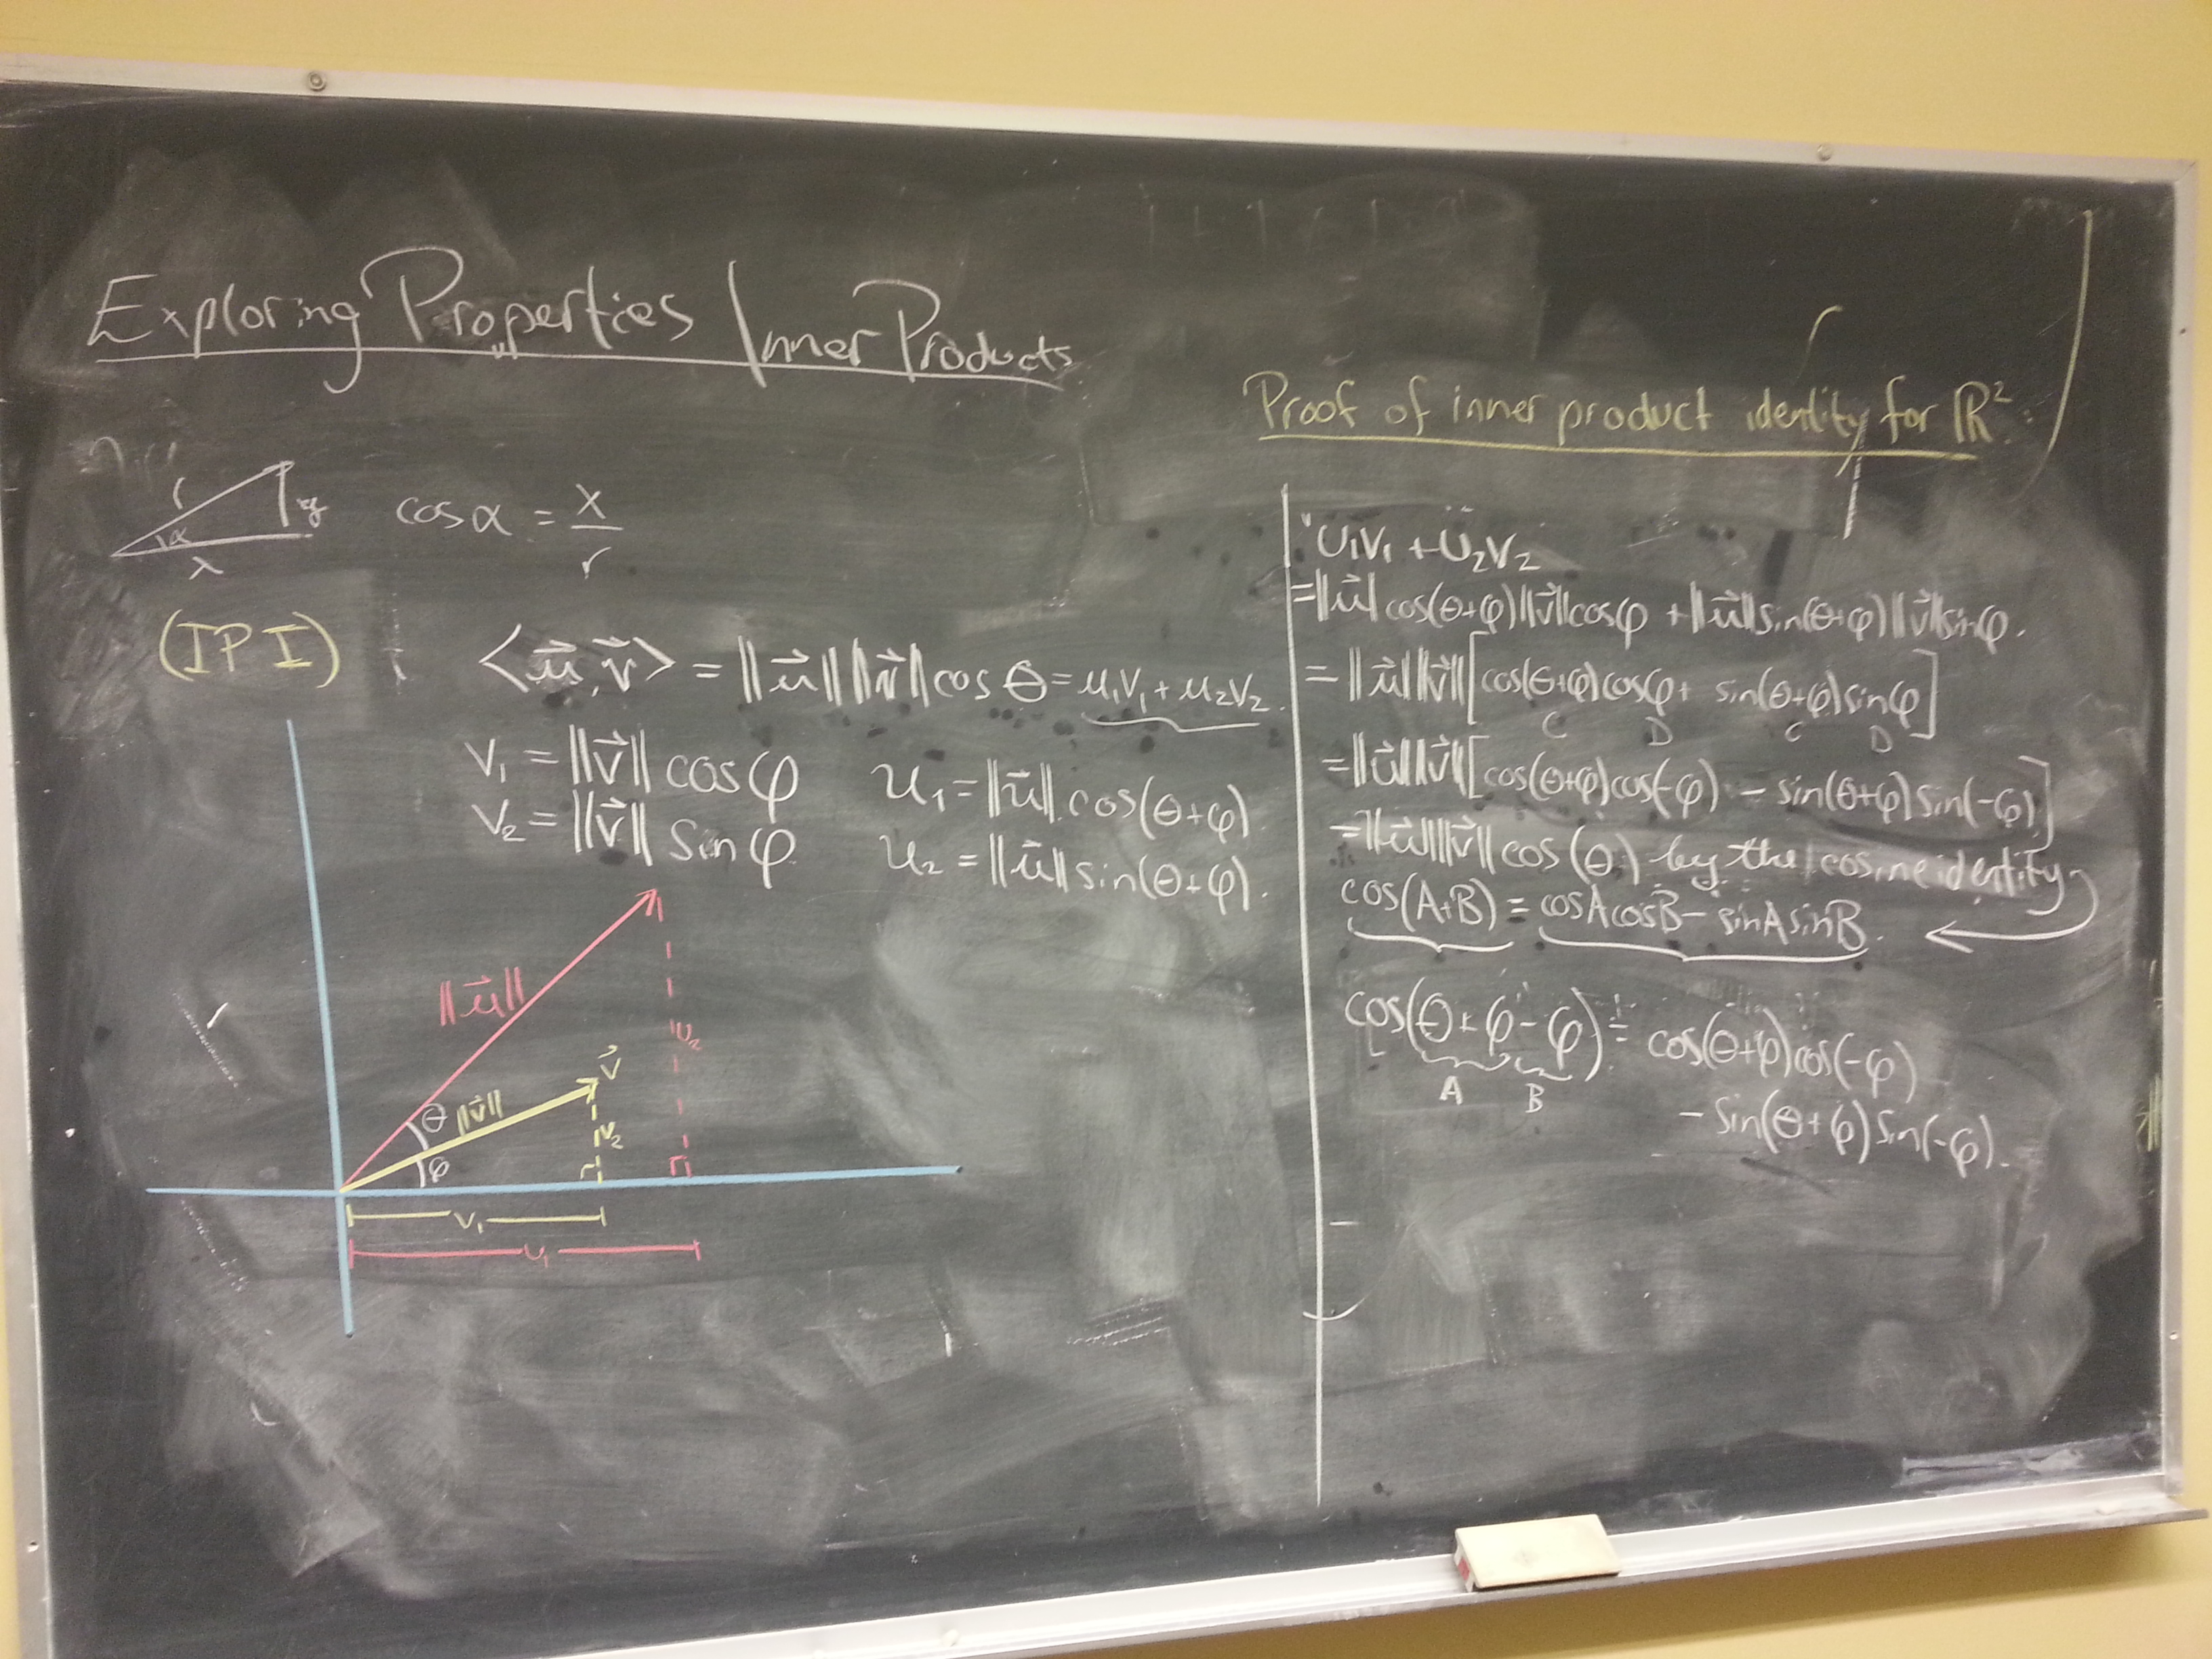 Exploring Properties Inner Products
r
y
α
x
cos α = x/r
(IPI)
⟨u⃗, v⃗⟩ = ‖u⃗‖ ‖v⃗‖ cos θ = u₁v₁ + u₂v₂
v₁ = ‖v⃗‖ cos φ
v₂ = ‖v⃗‖ sin φ
u₁ = ‖u⃗‖ cos(θ+φ)
u₂ = ‖u⃗‖ sin(θ+φ).
‖u⃗‖
u₂
v⃗
‖v⃗‖
θ
v₂
φ
v₁
u₁
Proof of inner product identity for ℝ²:
u₁v₁ + u₂v₂
= ‖u⃗‖ cos(θ+φ) ‖v⃗‖ cos φ + ‖u⃗‖ sin(θ+φ) ‖v⃗‖ sin φ.
= ‖u⃗‖‖v⃗‖ [cos(θ+φ) cos φ + sin(θ+φ) sin φ]
C D C D
= ‖u⃗‖‖v⃗‖ [cos(θ+φ) cos(-φ) - sin(θ+φ) sin(-φ)]
= ‖u⃗‖‖v⃗‖ cos(θ) by the cosine identity
cos(A+B) = cosAcosB - sinAsinB.
cos(θ+φ-φ) = cos(θ+φ)cos(-φ)
A B
- sin(θ+φ) sin(-φ).